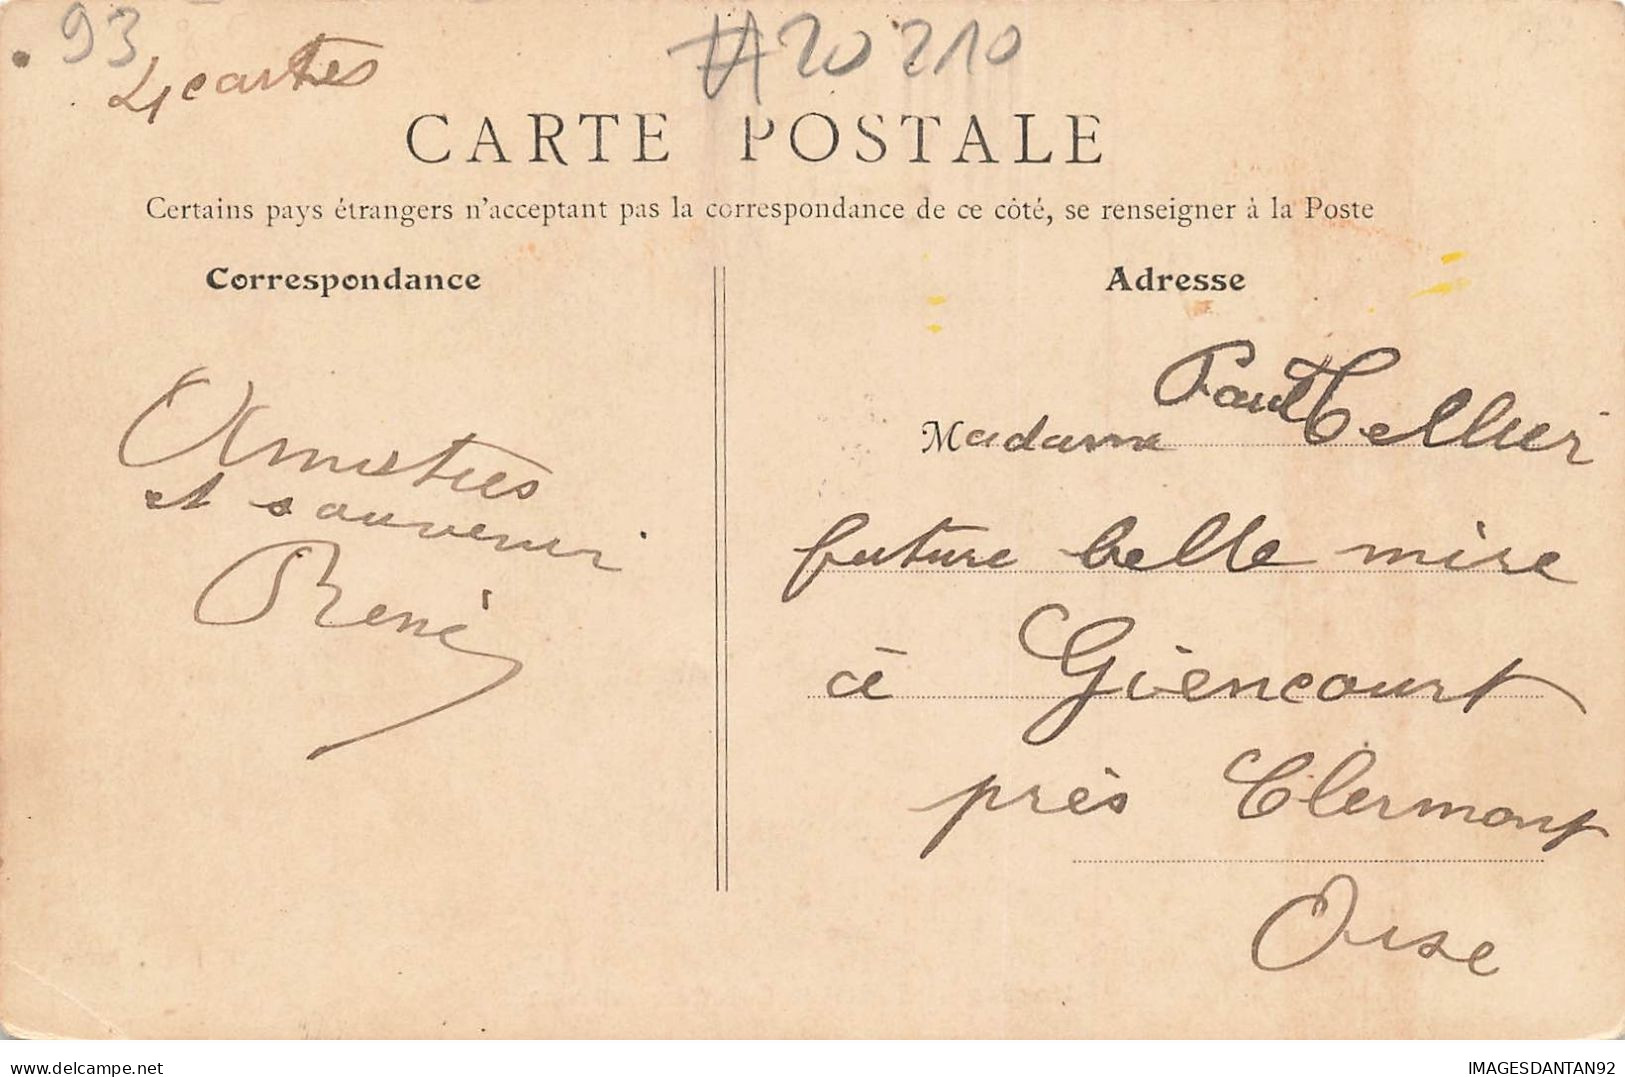 93
4 cartes
#20210
CARTE POSTALE
Certains pays étrangers n'acceptant pas la correspondance de ce côté, se renseigner à la Poste
Correspondance
Amitiés
et souvenir
René
Adresse
Madame Paul Tellier
future belle mère
à Giencourt
près Clermont
Oise
IMAGESDANTAN92